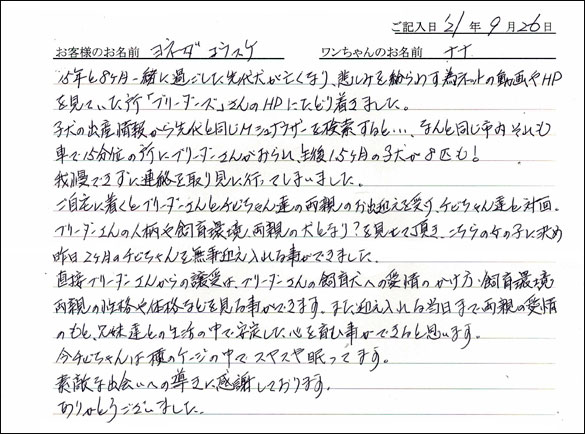 ご記入日 21年 9月 26日
お客様のお名前 ヨネーダ コウスケ ワンちゃんのお名前 ナナ
15年と8ヶ月一緒に過ごした先代犬が亡くなり、悲しみを紛らわす為ネットの動画やHP
を見ていた所「ブリーダーズ」さんのHPにたどり着きました。
子犬の出産情報から先代と同じMシュナウザーを検索すると…、なんと同じ市内それも
車で15分位の所にブリーダーさんがおられ、生後1.5ヶ月の子犬が8匹も!
我慢できずに連絡を取り見に行ってしまいました。
ご自宅に着くとブリーダーさんとチビちゃん達の両親のお出迎えを受け、チビちゃん達と対面。
ブリーダーさんの人柄や飼育環境、両親の犬となり?を見せて頂き、こちらの女の子に決め
昨日2ヶ月のチビちゃんを無事迎え入れる事ができました。
直接ブリーダーさんからの譲受は、ブリーダーさんの飼育犬への愛情のかけ方・飼育環境
両親の性格や体格などを見る事ができます。また迎え入れる当日まで両親の愛情
のもと、兄妹達との生活の中で安定した心を育む事ができると思います。
今チビちゃんは横のケージの中でスヤスヤ眠ってます。
素敵な出会いへの導きに感謝しております。
ありがとうございました。